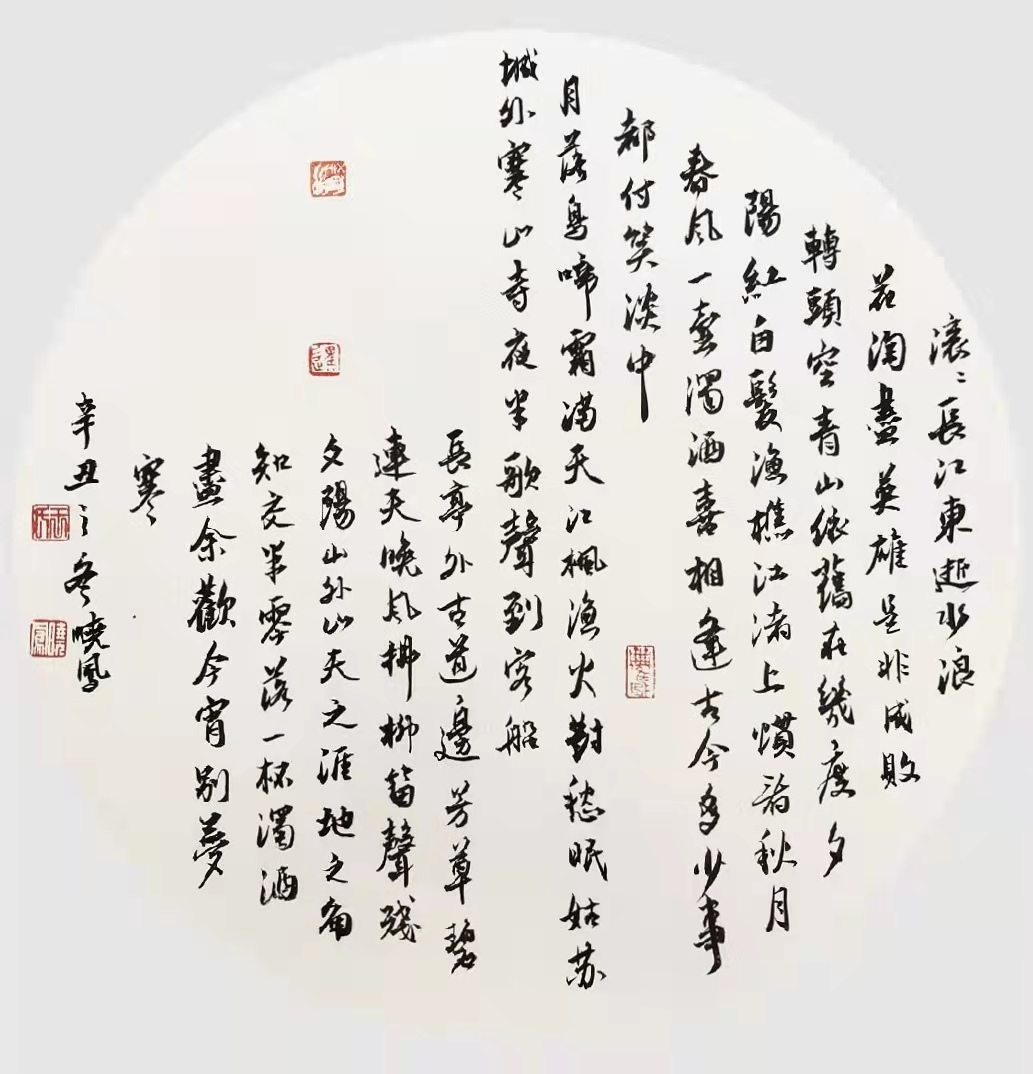 滚〻長江東逝水浪
花淘盡英雄是非成敗
轉頭空青山依舊在幾度夕
陽紅白髮漁樵江渚上慣看秋月
春風一壺濁酒喜相逢古今多少事
都付笑淡中
月落烏啼霜满天江楓漁火對愁眠姑苏
城外寒山寺夜半歌聲到客船
長亭外古道邊芳草碧
連天晚風拂柳笛聲殘
夕陽山外山天之涯地之角
知交半零落一杯濁酒
盡余歡今宵别夢
寒
辛丑之冬曉鳳
曉鳳